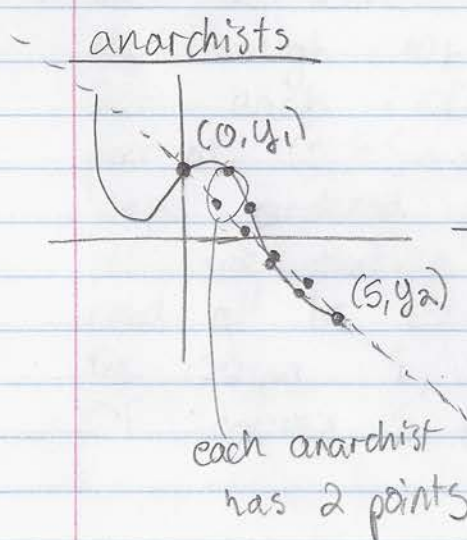 anarchists
(0, y₁)
(5, y₂)
each anarchist
has 2 points